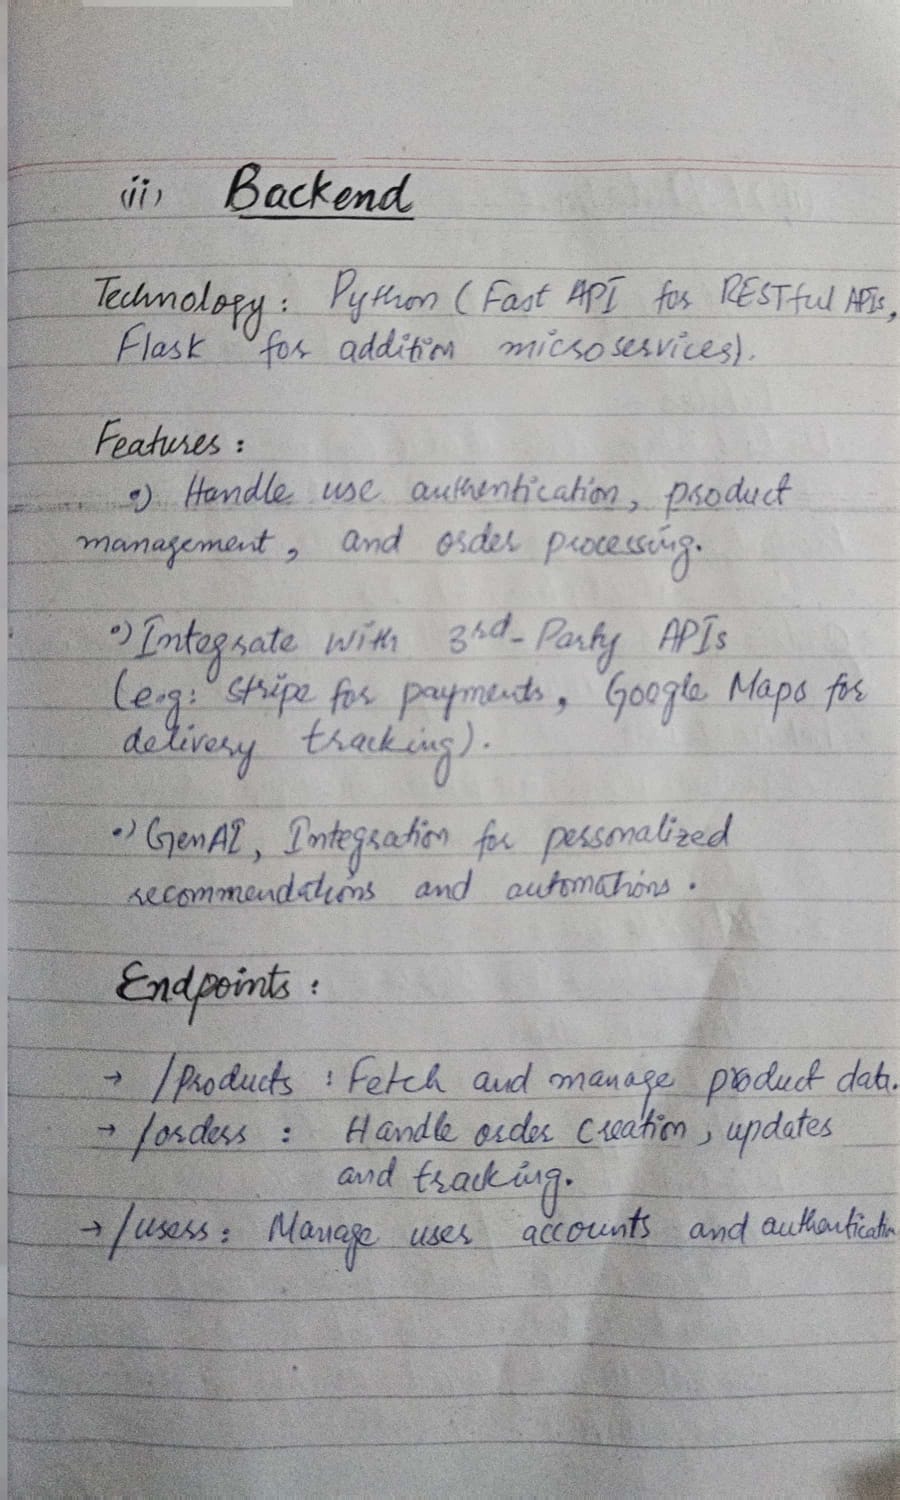 (ii) Backend
Technology: Python (Fast API for RESTful APIs,
Flask for addition microservices).
Features:
•) Handle use authentication, product
management, and order processing.
•) Integrate with 3rd-Party APIs
(e.g: Stripe for payments, Google Maps for
delivery tracking).
•) GenAI, Integration for personalized
recommendations and automations.
Endpoints:
→ /Products : Fetch and manage product data.
→ /orders : Handle order Creation, updates
and tracking.
→ /users: Manage user accounts and authentication